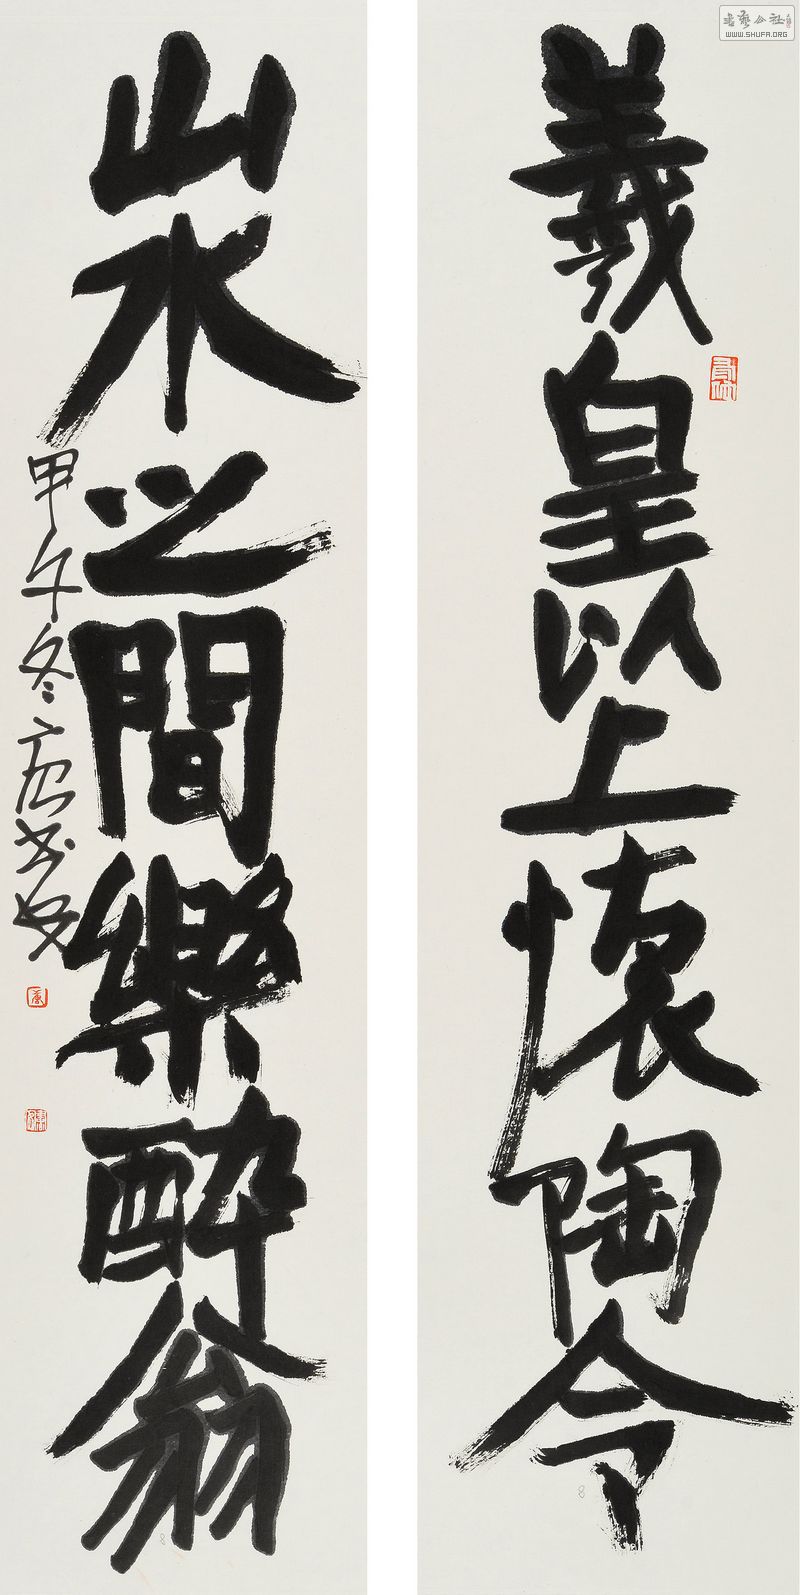 羲皇以上懷陶令
山水之間樂醉翁
甲午冬唐书安
书艺公社
WWW.SHUFA.ORG